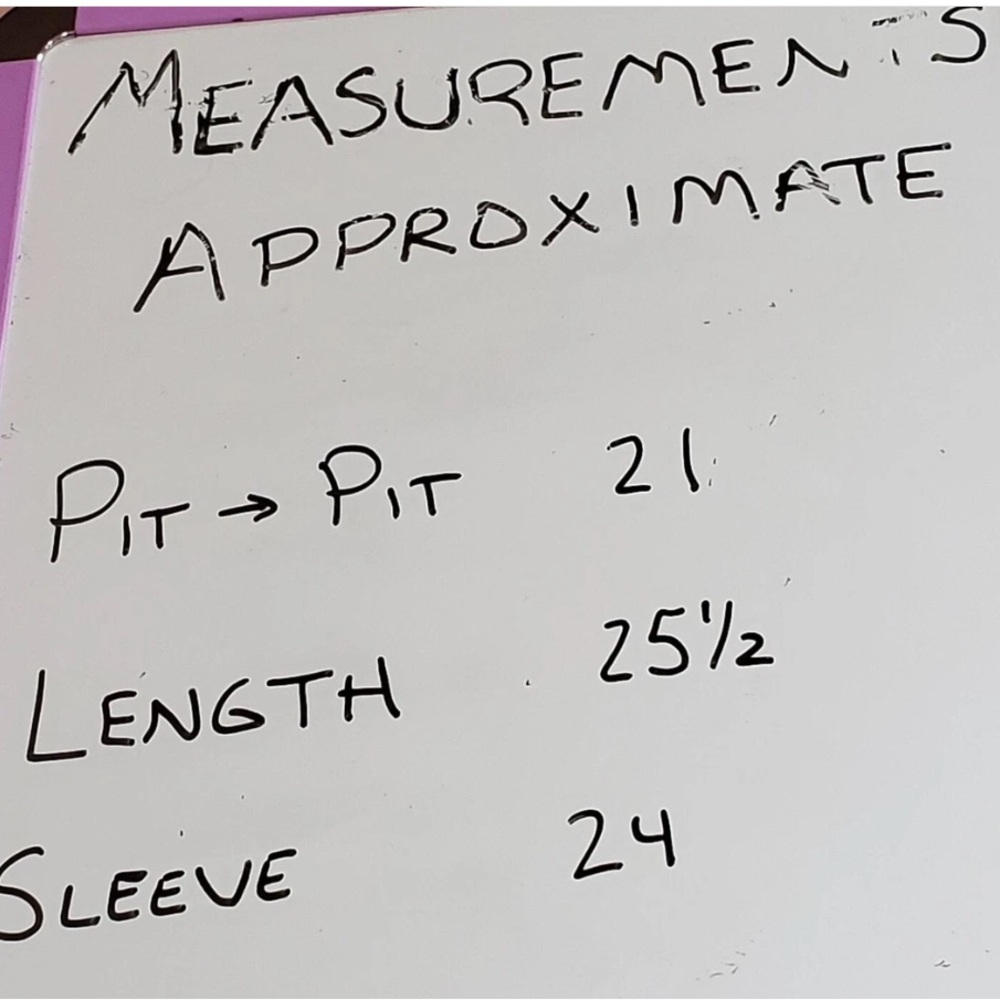 MEASUREMENTS
APPROXIMATE
PIT → PIT 21
LENGTH 25 1/2
SLEEVE 24